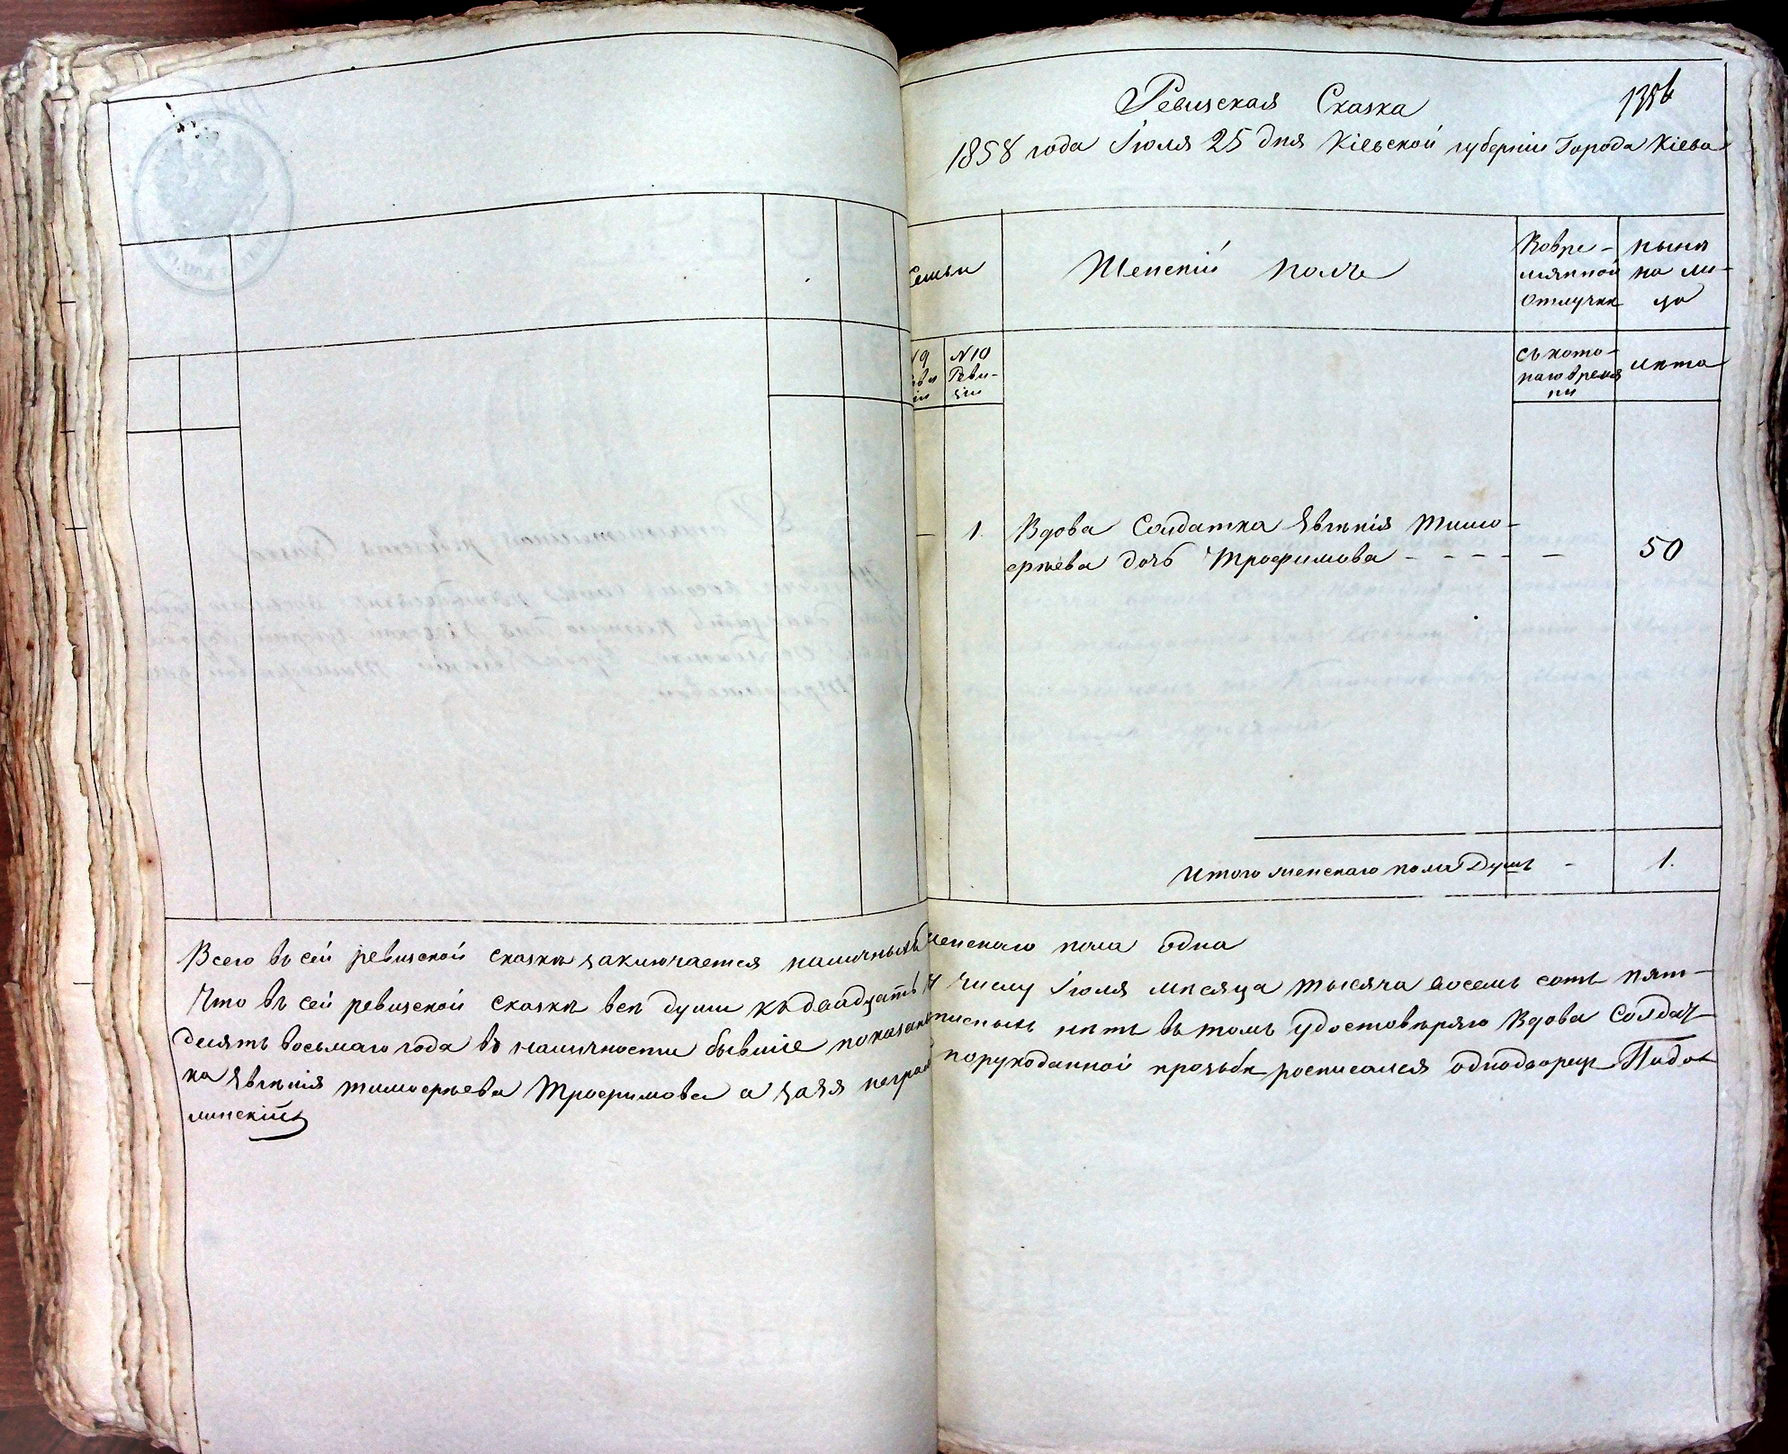 Ревизская Сказка
1858 года Іюля 25 дня Кіевской губерніи Города Кіева
Семьи
Женскій полъ
Вовре-
мянной
отлучкѣ
нынѣ
на ли-
цо
№ 10
Реви-
зіи
съ кото-
раго време
ни
лѣта
1.
Вдова Солдатка Евгенія Тимо-
фѣева дочь Трофимова - - - -
—
50
Итого женскаго пола Душъ
-
1.
Всего въ сей ревизской сказкѣ заключается наличныхъ женскаго пола одна
Что въ сей ревизской сказкѣ всѣ души къ двадцать числу Іюля мѣсяца тысяча восемь сотъ пять-
десятъ восьмаго года въ наличности бывшіе показаны нѣтъ въ томъ удостовѣряю Вдова Солдат-
ка Евгенія Тимофѣева Трофимова а заея неграм порукоданной прозьбѣ росписался однодворецъ